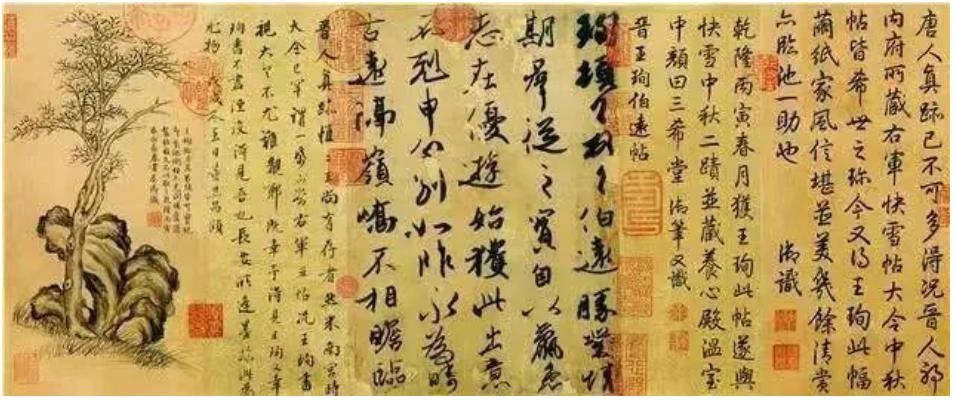 唐人真跡已不可多得況晉人耶
內府所藏右軍快雪帖大令中秋
帖皆希世之珍今又得王珣此幅
繭紙家風信堪並美幾餘清賞
亦臨池一助也 御識
乾隆丙寅春月獲王珣此帖遂與
快雪中秋二蹟並藏養心殿溫室
中顏曰三希堂 御筆又識
晉王珣伯遠帖
珣頓首頓首伯遠勝業情
期羣從之寶自以羸患
志在優遊始獲此出意
不剋申分別如昨永為疇
古遠隔嶺嶠不相瞻臨
晉人真跡惟二王尚有存者然米南宮時
大令已罕謂一紙可當右軍五帖況王珣書
視大令不尤難覩耶既幸予得見王珣又幸
珣書不盡湮沒得見吾也長安所逢墨跡此為
尤物 戊戌冬至日董其昌題